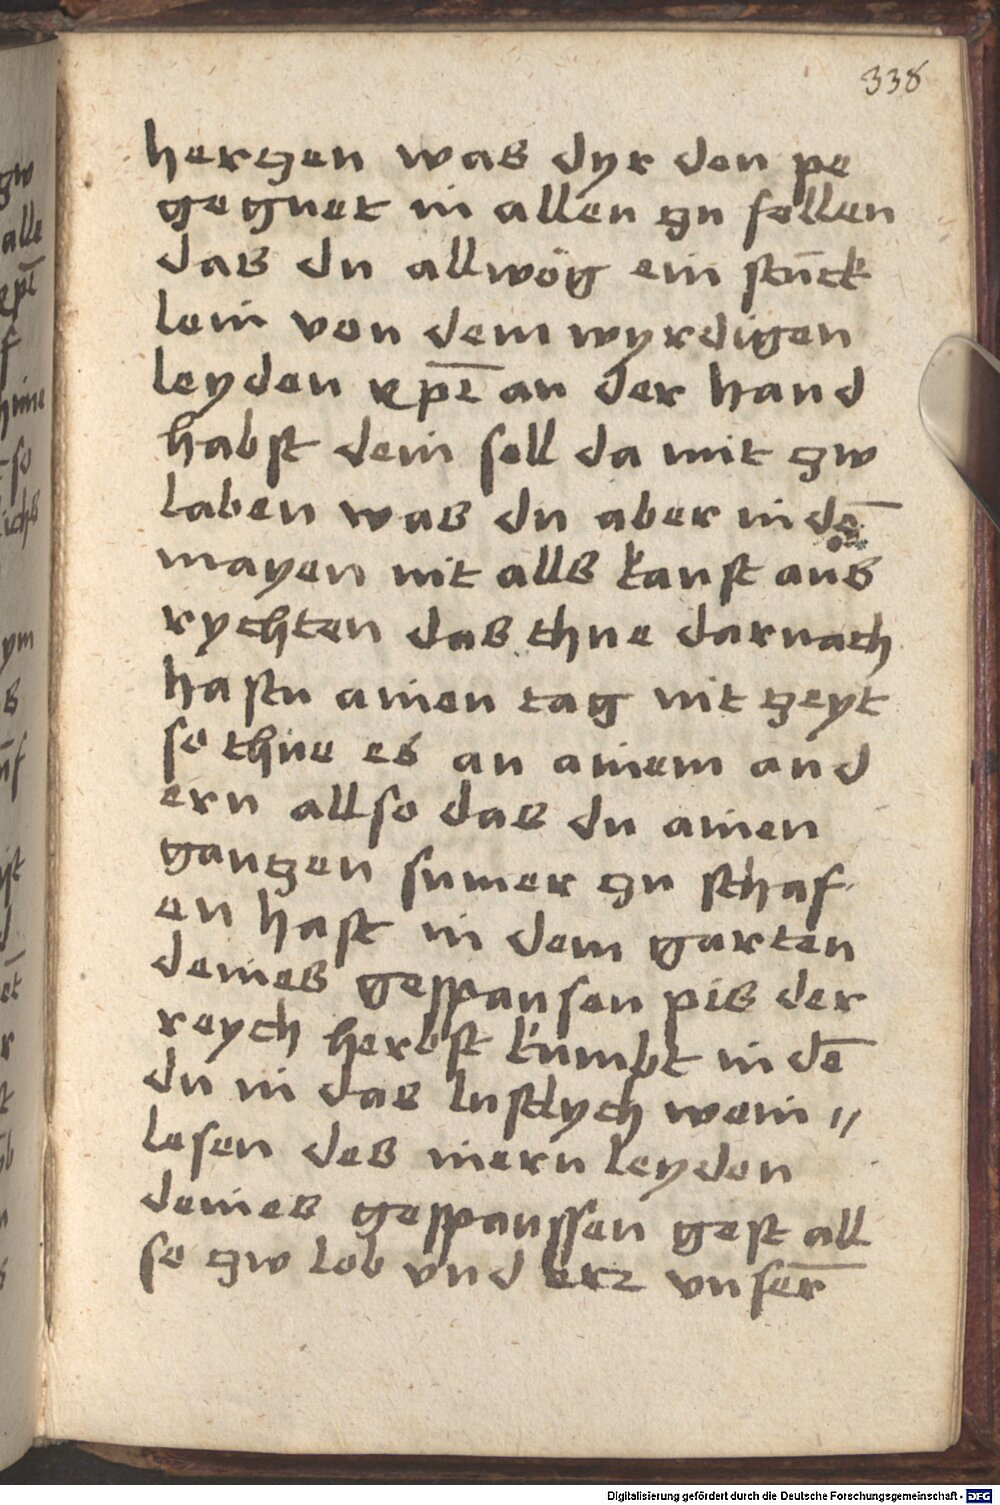 338
herczen was dyr den pe
gegnet in allen zu fellen
das du allwög ein stuck
lein von dem wyrdigen
leyden xpē an der hand
habst dein sell da mit zw
laben was du aber in dē
mayen nit alls kanst aus
rychten das thue darnach
hastu ainen tag nit zeyt
so thue es an ainem and
ern allso das du ainen
ganczen sumer zu schaf
en hast in dem garten
deines gespansen pis der
reych herbst kumbt in dē
du in das lustlych wein〃
lesen des inern leyden
deines gespanssen gest all
so zw lob vnd erz vnser̄
Digitalisierung gefördert durch die Deutsche Forschungsgemeinschaft - DFG